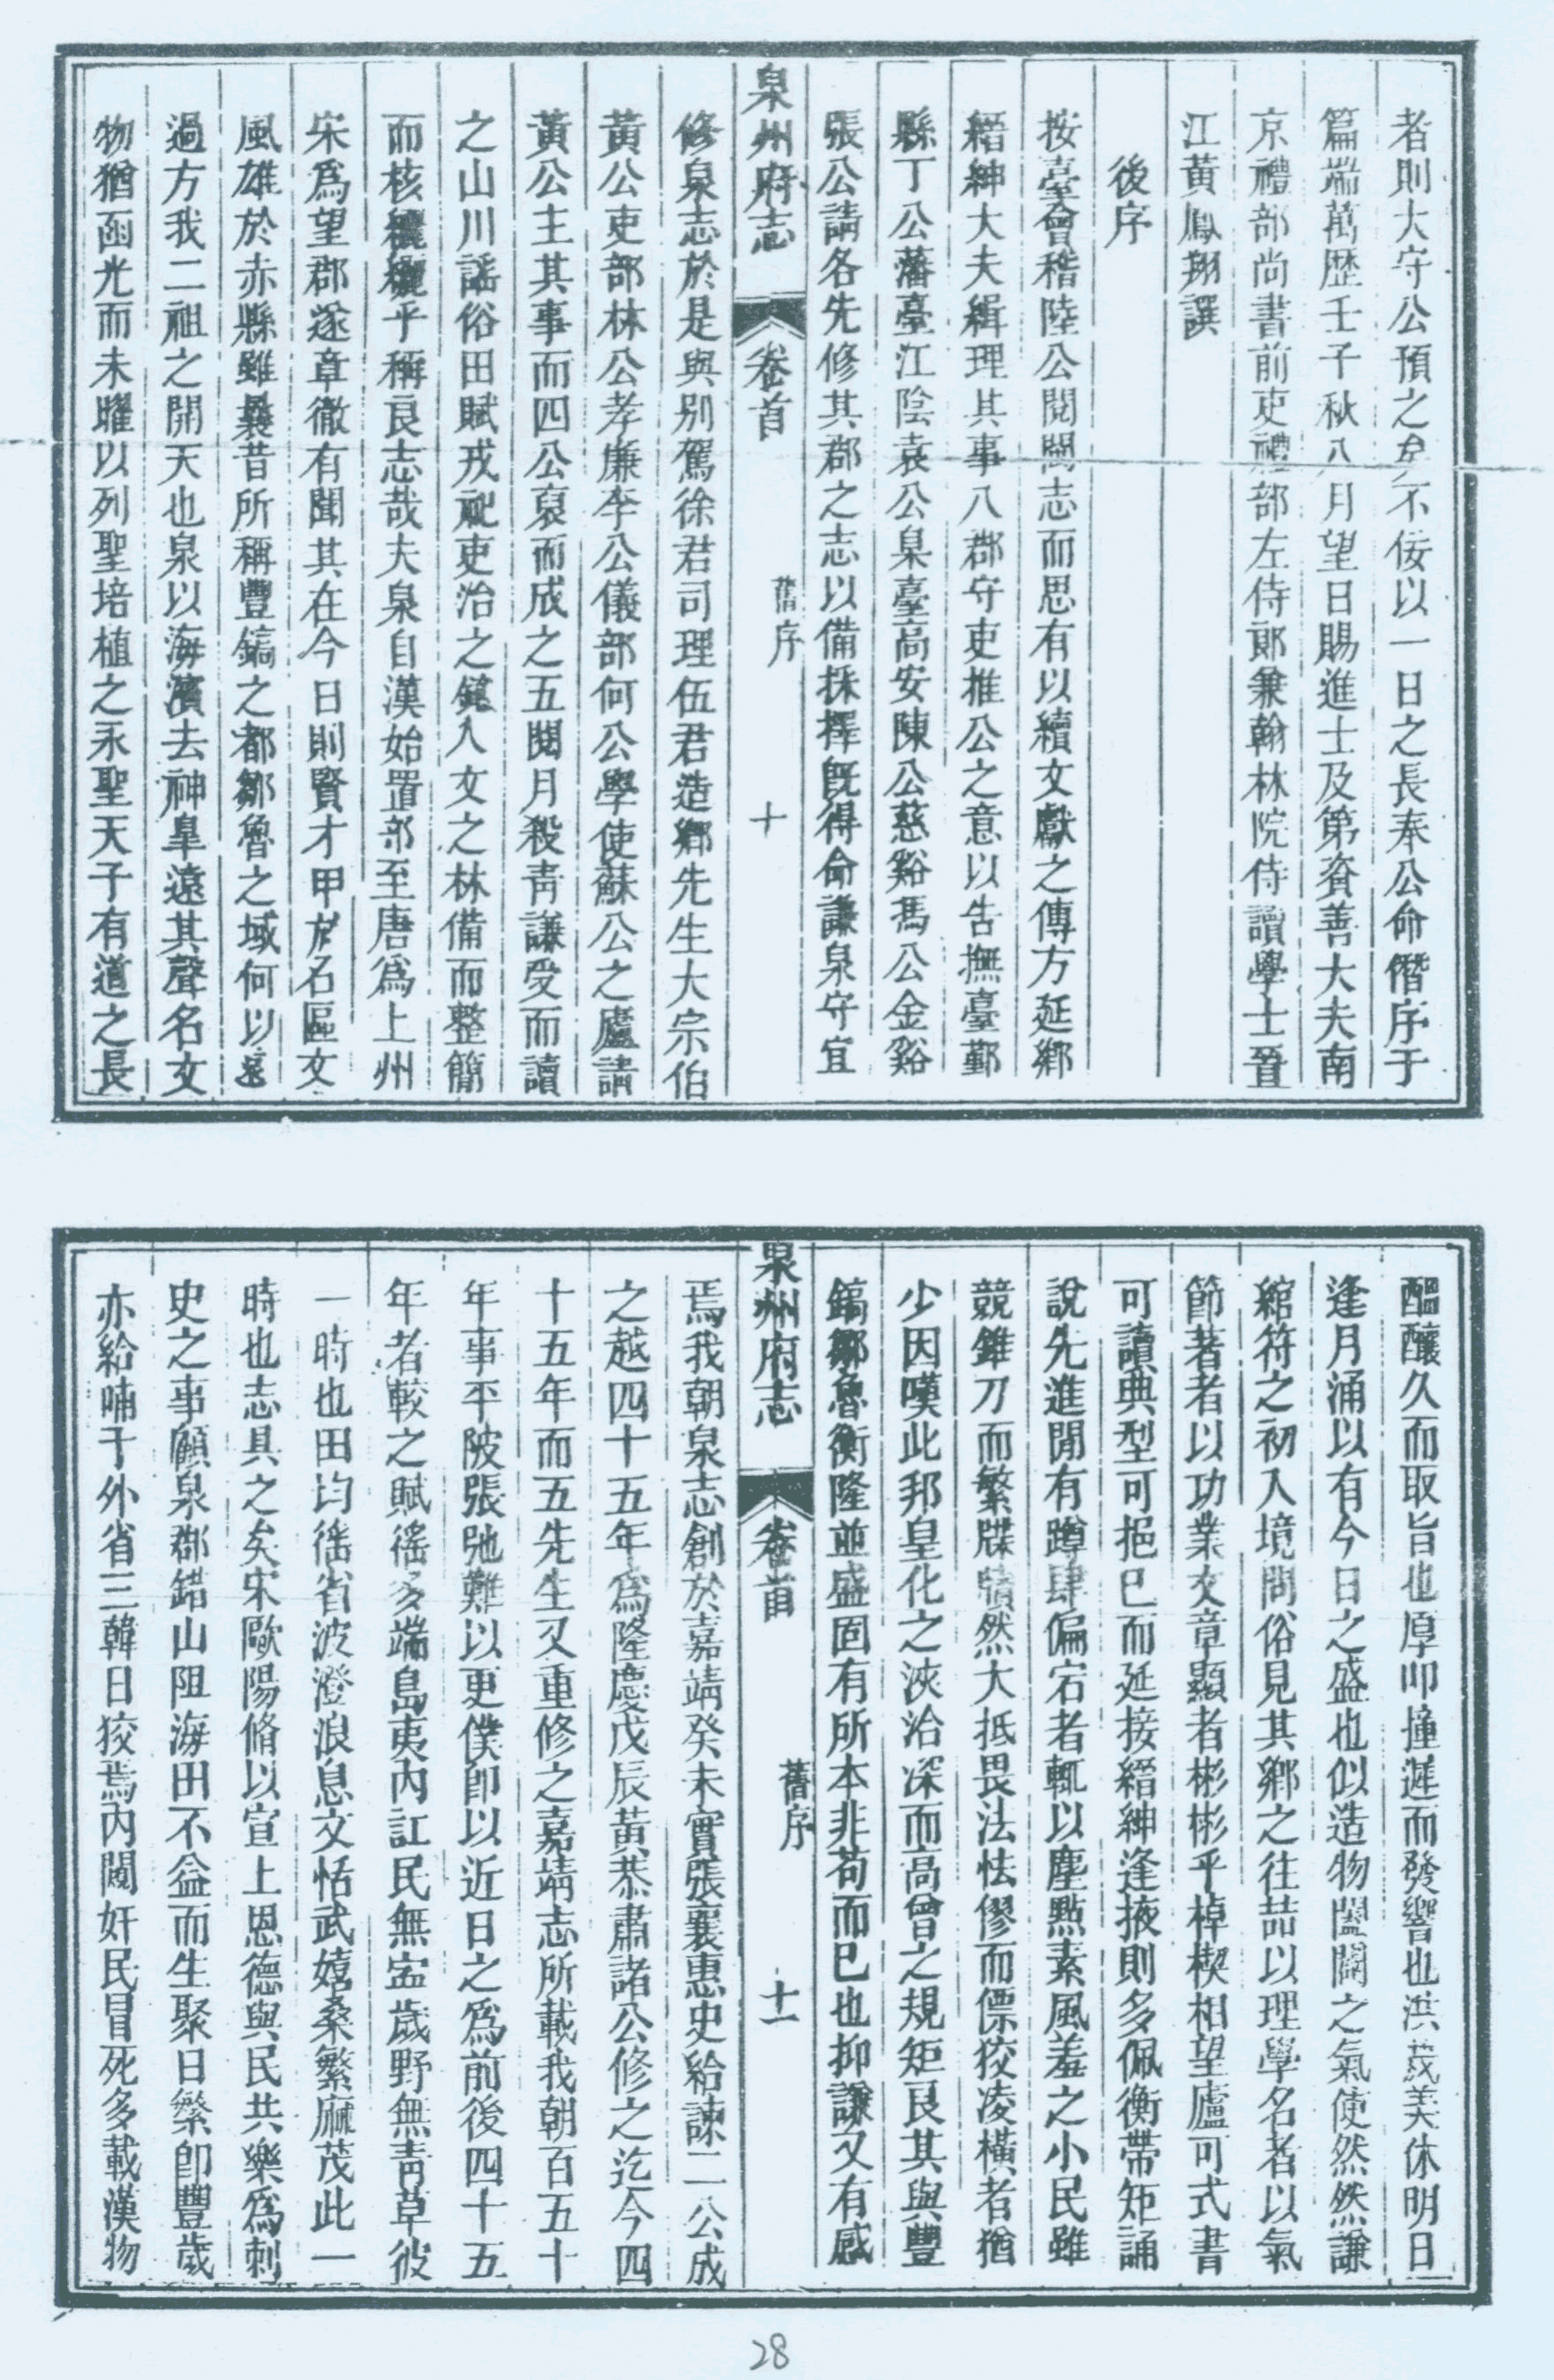 者則大守公預之矣不佞以一日之長奉公命僭序于
篇端萬歷壬子秋八月望日賜進士及第資善大夫南
京禮部尚書前吏禮部左侍郎兼翰林院侍讀學士晉
江黃鳳翔譔
後序
按臺會稽陸公閱閩志而思有以續文獻之傳方延鄉
縉紳大夫緝理其事八郡守吏推公之意以告撫臺鄞
縣丁公藩臺江陰袁公臬臺高安陳公慈谿馮公金谿
張公請各先修其郡之志以備採擇旣得命謙泉守宜
泉州府志 卷首 舊序 十
修泉志於是與別駕徐君司理伍君造鄉先生大宗伯
黃公吏部林公孝廉李公儀部何公學使蘇公之廬請
黃公主其事而四公裒而成之五閱月殺靑謙受而讀
之山川謠俗田賦戎祀吏治之鏡人文之林備而整簡
而核纚纚乎稱良志哉夫泉自漢始置部至唐爲上州
宋爲望郡遂章徹有聞其在今日則賢才甲於名區文
風雄於赤縣雖曩昔所稱豐鎬之都鄒魯之域何以遠
過方我二祖之開天也泉以海濱去神臯遠其聲名文
物猶函光而未曜以列聖培植之永聖天子有道之長
醞釀久而取旨也厚叩撞遲而發響也洪茂美休明日
逢月涌以有今日之盛也似造物闔闢之氣使然然謙
綰符之初入境問俗見其鄉之往喆以理學名者以氣
節著者以功業文章顯者彬彬乎棹楔相望廬可式書
可讀典型可挹巳而延接縉紳逢掖則多佩衡帶矩誦
說先進閒有蹲肆偏宕者輒以塵㸃素風羞之小民雖
競錐刀而繁牒牘然大抵畏法怯僇而僄狡凌橫者猶
少因嘆此邦皇化之浹洽深而高曾之規矩良其與豐
鎬鄒魯衡隆並盛固有所本非苟而巳也抑謙又有感
泉州府志 卷首 舊序 十一
焉我朝泉志創於嘉靖癸未實張襄惠史給諫二公成
之越四十五年爲隆慶戊辰黃恭肅諸公修之迄今四
十五年而五先生又重修之嘉靖志所載我朝百五十
年事平陂張弛難以更僕卽以近日之爲前後四十五
年者較之賦徭多端島夷內訌民無宓歲野無靑草彼
一時也田均徭省波澄浪息文恬武嬉桑繁麻茂此一
時也志具之矣宋歐陽脩以宣上恩德與民共樂爲刺
史之事顧泉郡錯山阻海田不益而生聚日繁卽豐歲
亦給哺于外省三韓日狡焉內䦧奸民冒死多載漢物
28